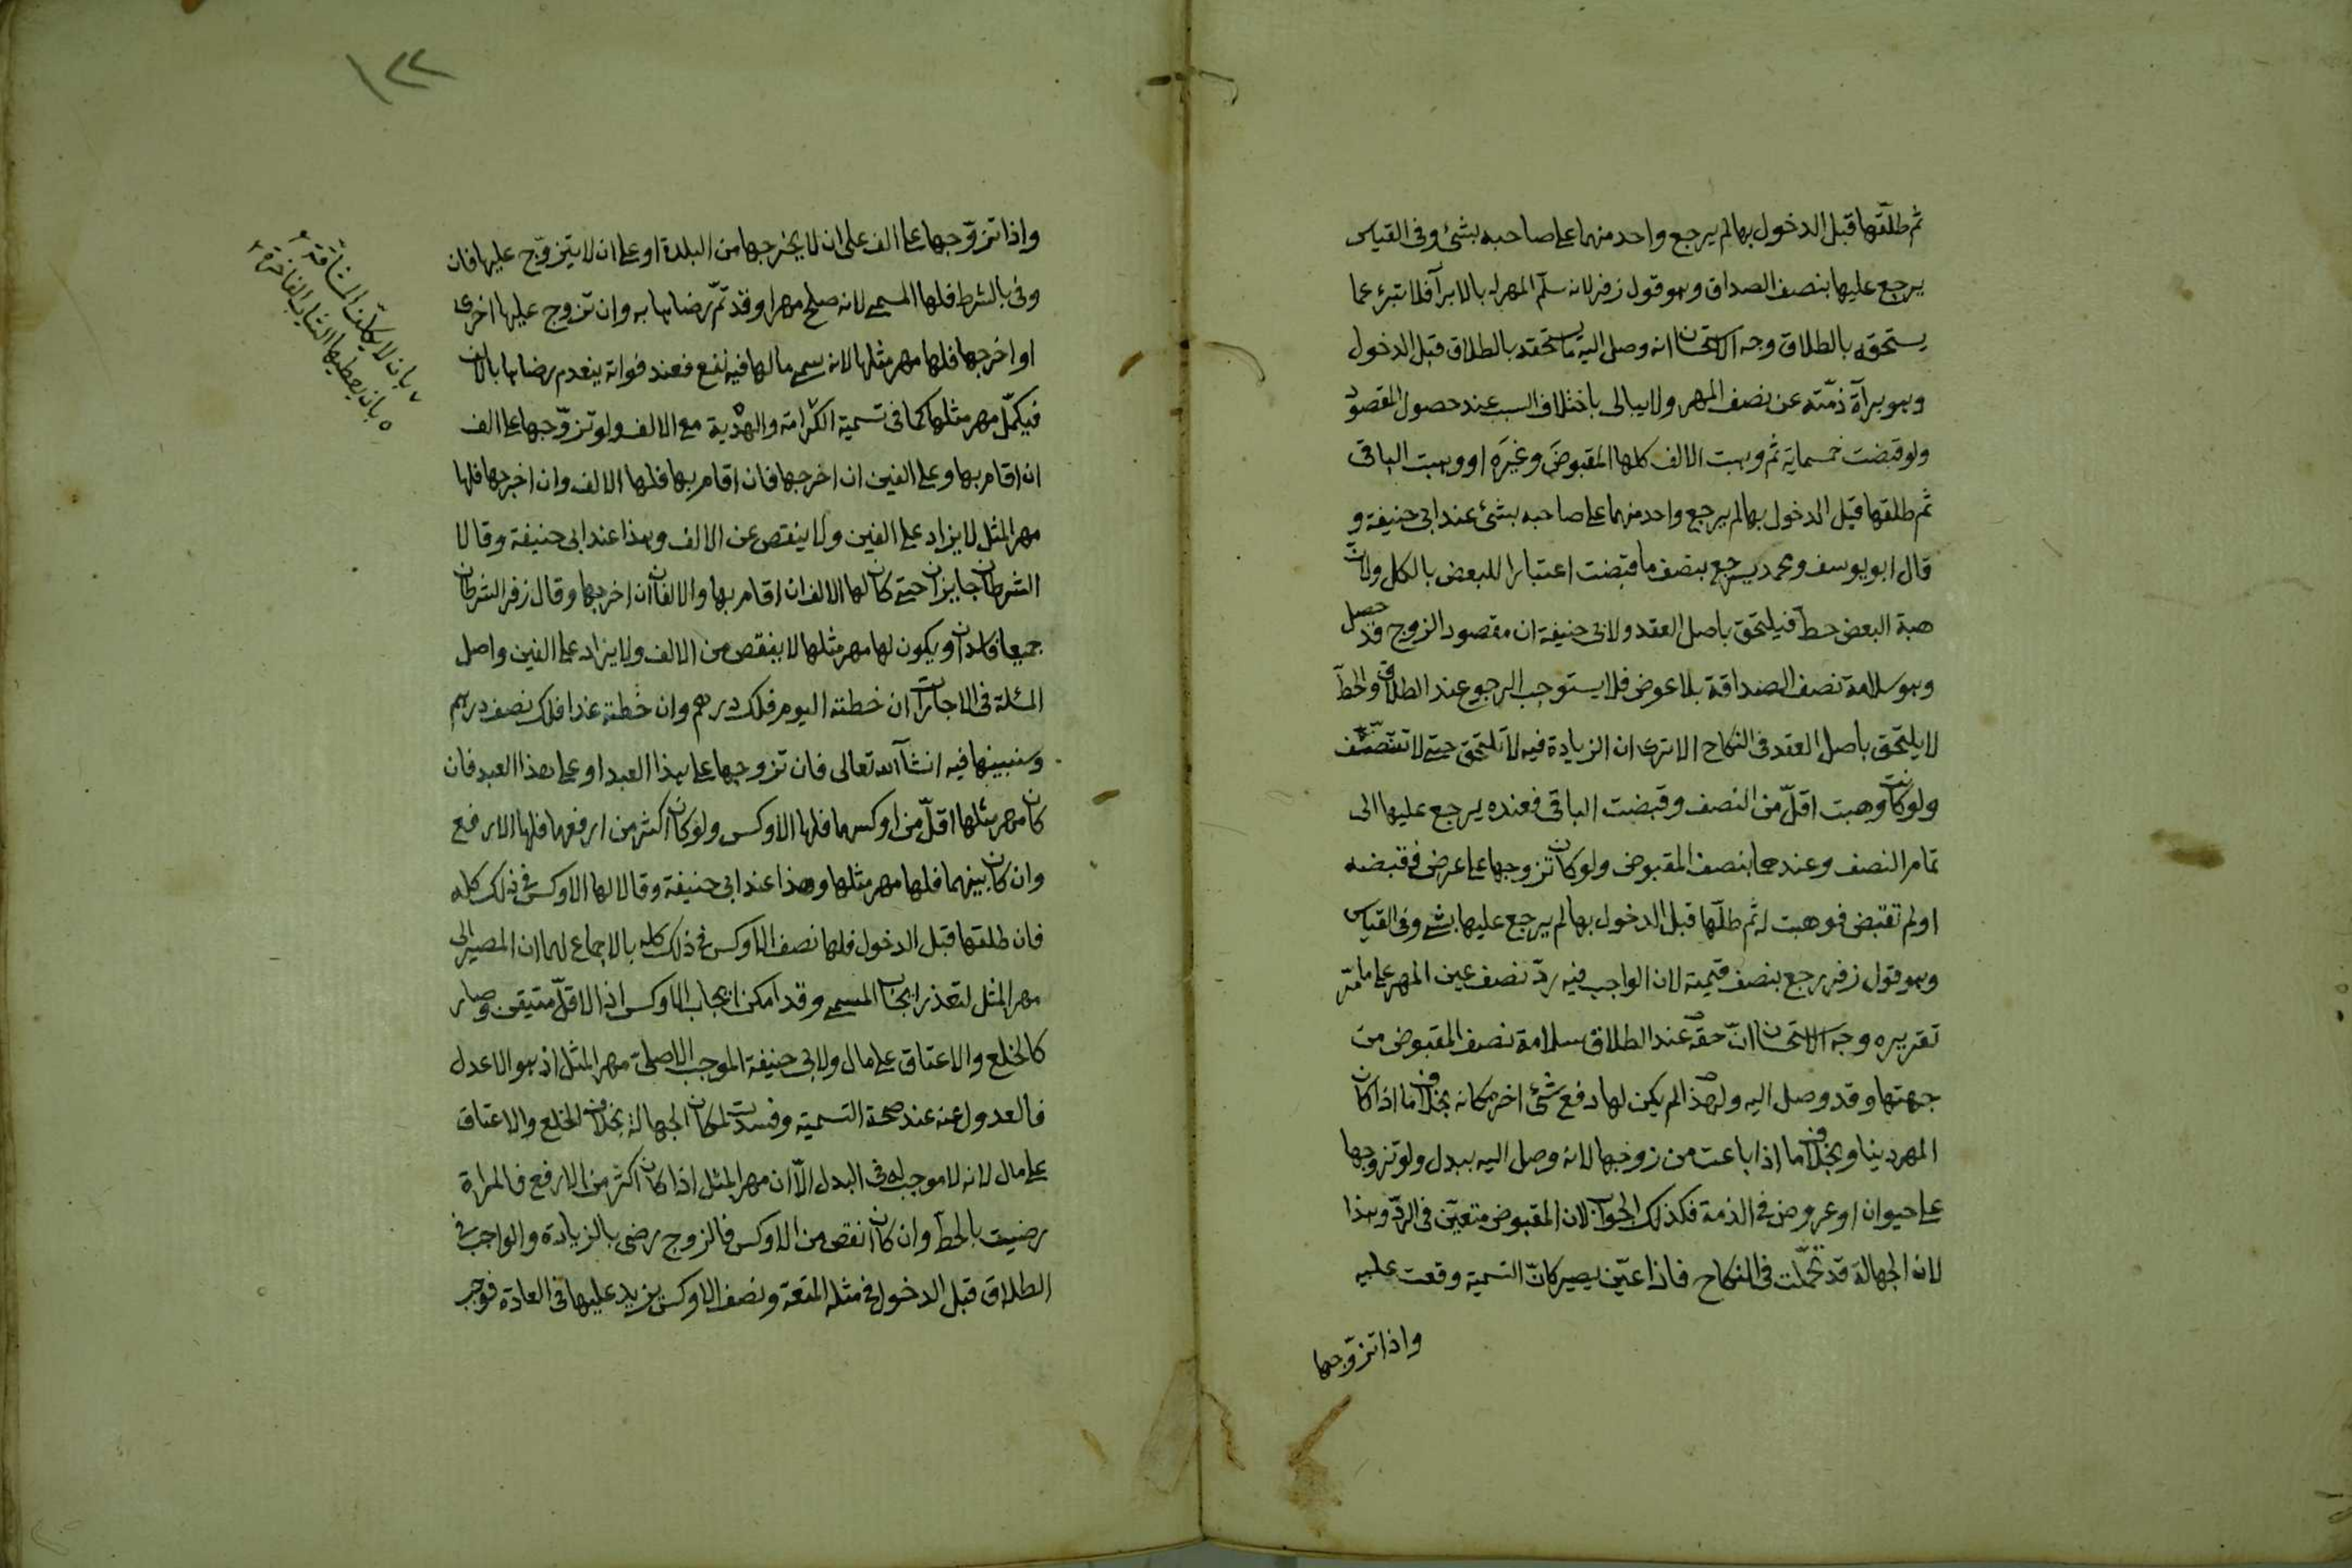 ثم طلّقها قبل الدخول بها لم يرجع واحد منهما على صاحبه بشئ وفى القياس
يرجع عليها بنصف الصداق وهو قول زفر لانه سلّم المهر له بالابرآ فلا تبرئ عما
يستحقه بالطلاق وجه الاستحسان انه وصل اليه ما يستحقه بالطلاق قبل الدخول
وهو برآة ذمّته عن نصف المهر ولا يبالى باختلاف السبب عند حصول المقصود
ولو قبضت خمسماية ثم وهبت الالف كلها المقبوضَ وغيرَه او وهبت الباقى
ثم طلقها قبل الدخول بها لم يرجع واحد منهما على صاحبه بشئ عند ابى حنيفة و
قال ابو يوسف ومحمد يرجع بنصف ما قبضت اعتبارا للبعض بالكل ولان
هبة البعض حطّ فيلتحق باصل العقد ولابى حنيفة ان مقصود الزوج قد حصل
وهو سلامة نصف الصداقة بلا عوض فلا يستوجب الرجوع عند الطلاق والحطّ
لا يلتحق باصل العقد فى النكاح الا ترى ان الزيادة فيه لا تلتحق حتى لا تتنصّف
ولو كانت وهبت اقلّ من النصف وقبضت الباقى فعنده يرجع عليها الى
تمام النصف وعندهما بنصف المقبوض ولو كان تزوجها على عرض فقبضه
او لم تقبض فوهبت له ثم طلّقها قبل الدخول بها لم يرجع عليها بشئ وفى القياس
وهو قول زفر يرجع بنصف قيمته لان الواجب فيه ردّ نصف عين المهر على ما مرّ
تقريره وجه الاستحسان انّ حقه عند الطلاق سلامة نصف المقبوض من
جهتها وقد وصل اليه ولهذا لم يكن لها دفع شئ اخر مكانه بخلاف ما اذا كان
المهر دينا وبخلاف ما اذا باعت من زوجها لانه وصل اليه ببدل ولو تزوجها
على حيوان او عروض فى الذمة فكذلك الجواب لان المقبوض متعيّن فى الردّ وهذا
لان الجهالة قد تحمّلت فى النكاح فاذا عيّن يصير كانّ التسمية وقعت عليه
واذا تزوّجها
١٢٢
واذا تزوّجها على الف على ان لا يخرجها من البلدة او على ان لا يتزوّج عليها فان
وفى بالشرط فلها المسمى لانه صلح مهرا وقد تمّ رضاها به وان تزوج عليها اخرى
او اخرجها فلها مهر مثلها لانه سمى ما لها فيه نفع فعند فواته ينعدم رضاها بالالف
فيكمّل مهر مثلها كما فى تسمية الكرامة والهدية مع الالف ولو تزوّجها على الف
ان اقام بها وعلى الفين ان اخرجها فان اقام بها فلها الالف وان اخرجها فلها
مهر المثل لا يزاد على الفين ولا ينقص عن الالف وهذا عند ابى حنيفة وقالا
الشرطان جايزان حتى كان لها الالف ان اقام بها والالفان ان اخرجها وقال زفر الشرطان
جميعا فاسدان ويكون لها مهر مثلها لا ينقص من الالف ولا يزاد على الفين واصل
المسئلة فى الاجارات ان خطته اليوم فلك درهم وان خطته غدا فلك نصف درهم
وسنبينها فيه انشآ الله تعالى فان تزوجها على هذا العبد او على هذا العبد فان
كان مهر مثلها اقلّ من اوكسهما فلها الاوكس ولو كان اكثر من ارفعهما فلها الارفع
وان كان بينهما فلها مهر مثلها وهذا عند ابى حنيفة وقالا لها الاوكس فى ذلك كله
فان طلقها قبل الدخول فلها نصف الاوكس فى ذلك كله بالاجماع لهما ان المصير الى
مهر المثل لتعذر ايجاب المسمى وقد امكن ايجاب الاوكس اذ الاقلّ متيقن وصار
كالخلع والاعتاق على مال ولابى حنيفة الموجب الاصلىّ مهر المثل اذ هو الاعدل
فالعدول عنه عند صحة التسمية وفسدت لمكان الجهالة بخلاف الخلع والاعتاق
على مال لانه لا موجب له فى البدل الّا ان مهر المثل اذا كان اكثر من الارفع فالمراة
رضيت بالحط وان كان انقص من الاوكس فالزوج رضى بالزيادة والواجب فى
الطلاق قبل الدخول فى مثله المتعة ونصف الاوكس يزيد عليها فى العادة فوجب
بان لا يكلف المشاقة
بان يعطيها الثياب الفاخرة